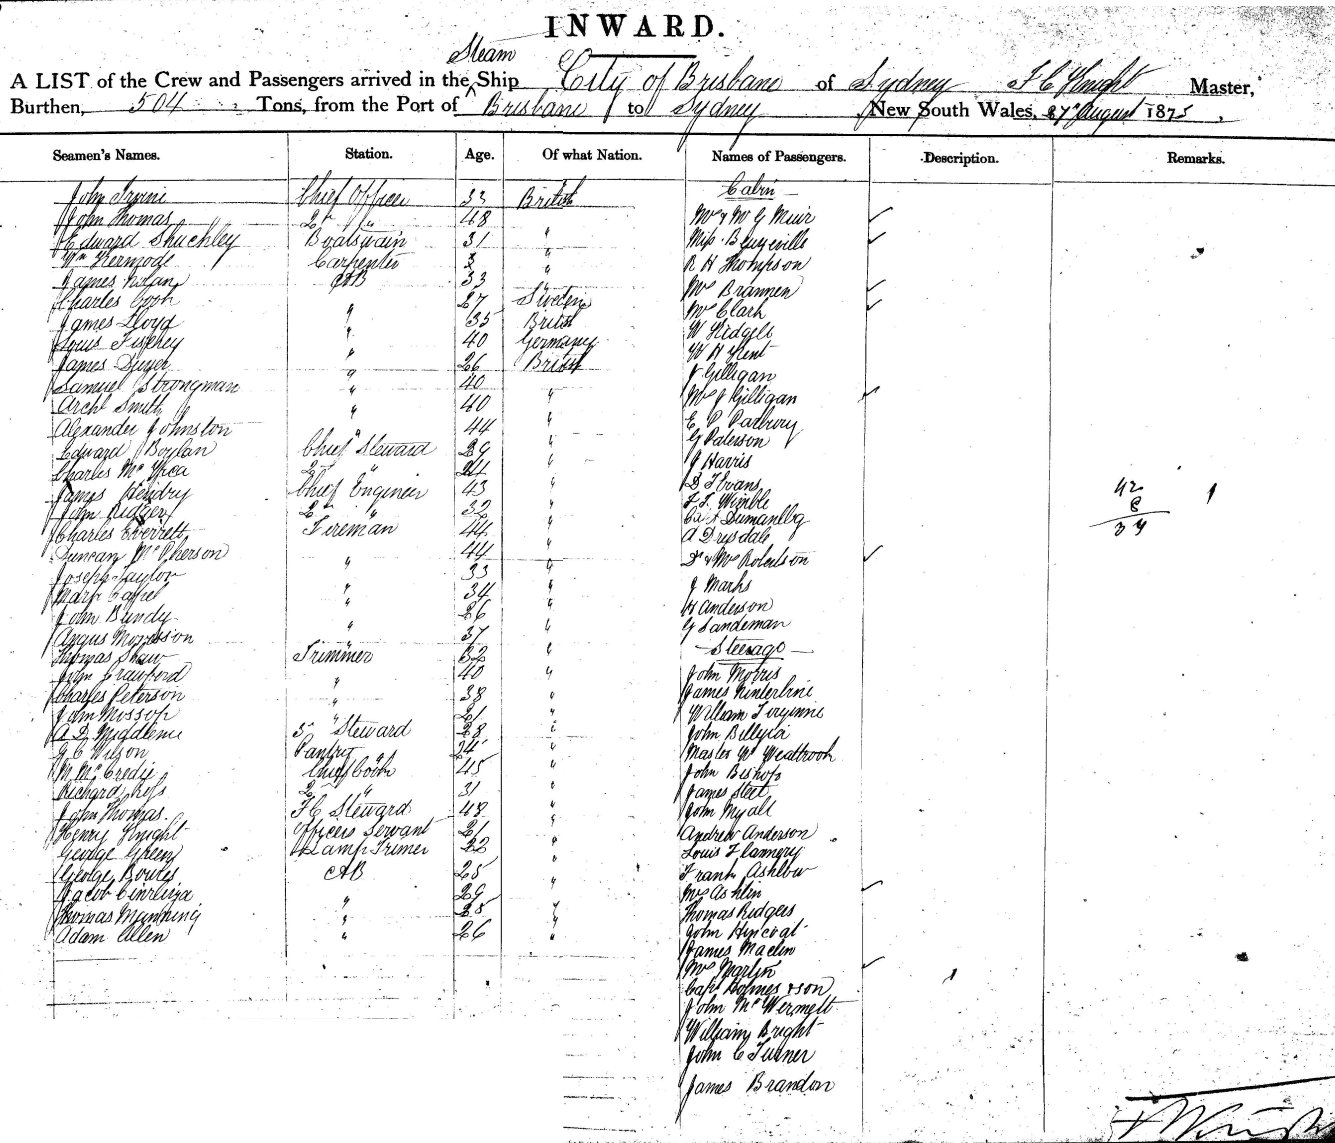 INWARD.
Steam
A LIST of the Crew and Passengers arrived in the Ship City of Brisbane of Sydney F C Knight Master,
Burthen, 504 Tons, from the Port of Brisbane to Sydney New South Wales, 27th August 1875.
Seamen's Names. Station. Age. Of what Nation. Names of Passengers. Description. Remarks.
John Irvine Chief Officer 33 British
John Thomas 2nd " 48
Edward Shuchley Boatswain 31 "
Wm Kermode Carpenter "
James Nolan AB 33
Charles Cook 27 Sweden
James Lloyd " 35 British
Louis " 40 Germany
James Dwyer " 26 British
Samuel Strongman " 40
Archd Smith " 40 "
Alexander Johnston " 44 "
Edward Boylan Chief Steward 29 "
Charles 2nd " "
James Hendry Chief Engineer 43 "
John Ridger 2nd " 32 "
Charles Everrett Fireman 44 "
Duncan McPherson 44 "
Joseph Taylor " 33 "
Mark " 34 "
John Bundy " 26 "
Angus Morisson " 37 "
Thomas Shaw Trimmer 32 "
John Crawford 40 "
Charles Peterson " 38 "
John Mossop " 21 "
A D Middlemi 3rd Steward 28 "
J C Wilson Pantry " 24 "
M McCredie Chief Cook 45 "
Richard Ross 2nd " 31 "
John Thomas. F C Steward 48 "
Henry Knight Officers Servant 21 "
George Green Lamp Trimer 22 "
George Bowles AB 25 "
Jacob 29 "
Thomas Manning " 28 "
Adam Allen " 26 "
Cabin
Mr & Mrs G Muir
Miss
R H Thompson
Mrs Brannen
Mrs Clark
W
W H Kent
J Gilligan
Mrs J Gilligan
E P Parbury
G Paterson
J Harris
D T Evans
F. T. Wimble
A Drysdale
Dr & Mrs Robertson
J Marks
H Anderson
G Sandeman
Steerage
John Morris
James
William
John
Master W Weatbrook
John Bishop
James Steel
John Myall
Andrew Anderson
Louis Flannery
Frank Ashlow
Mrs Ashlin
Thomas Ridgers
John
James Maclin
Mrs Martyn
Capt Holmes & son
John McWermett
William Bright
John C Turner
James Brandon
42
8
34